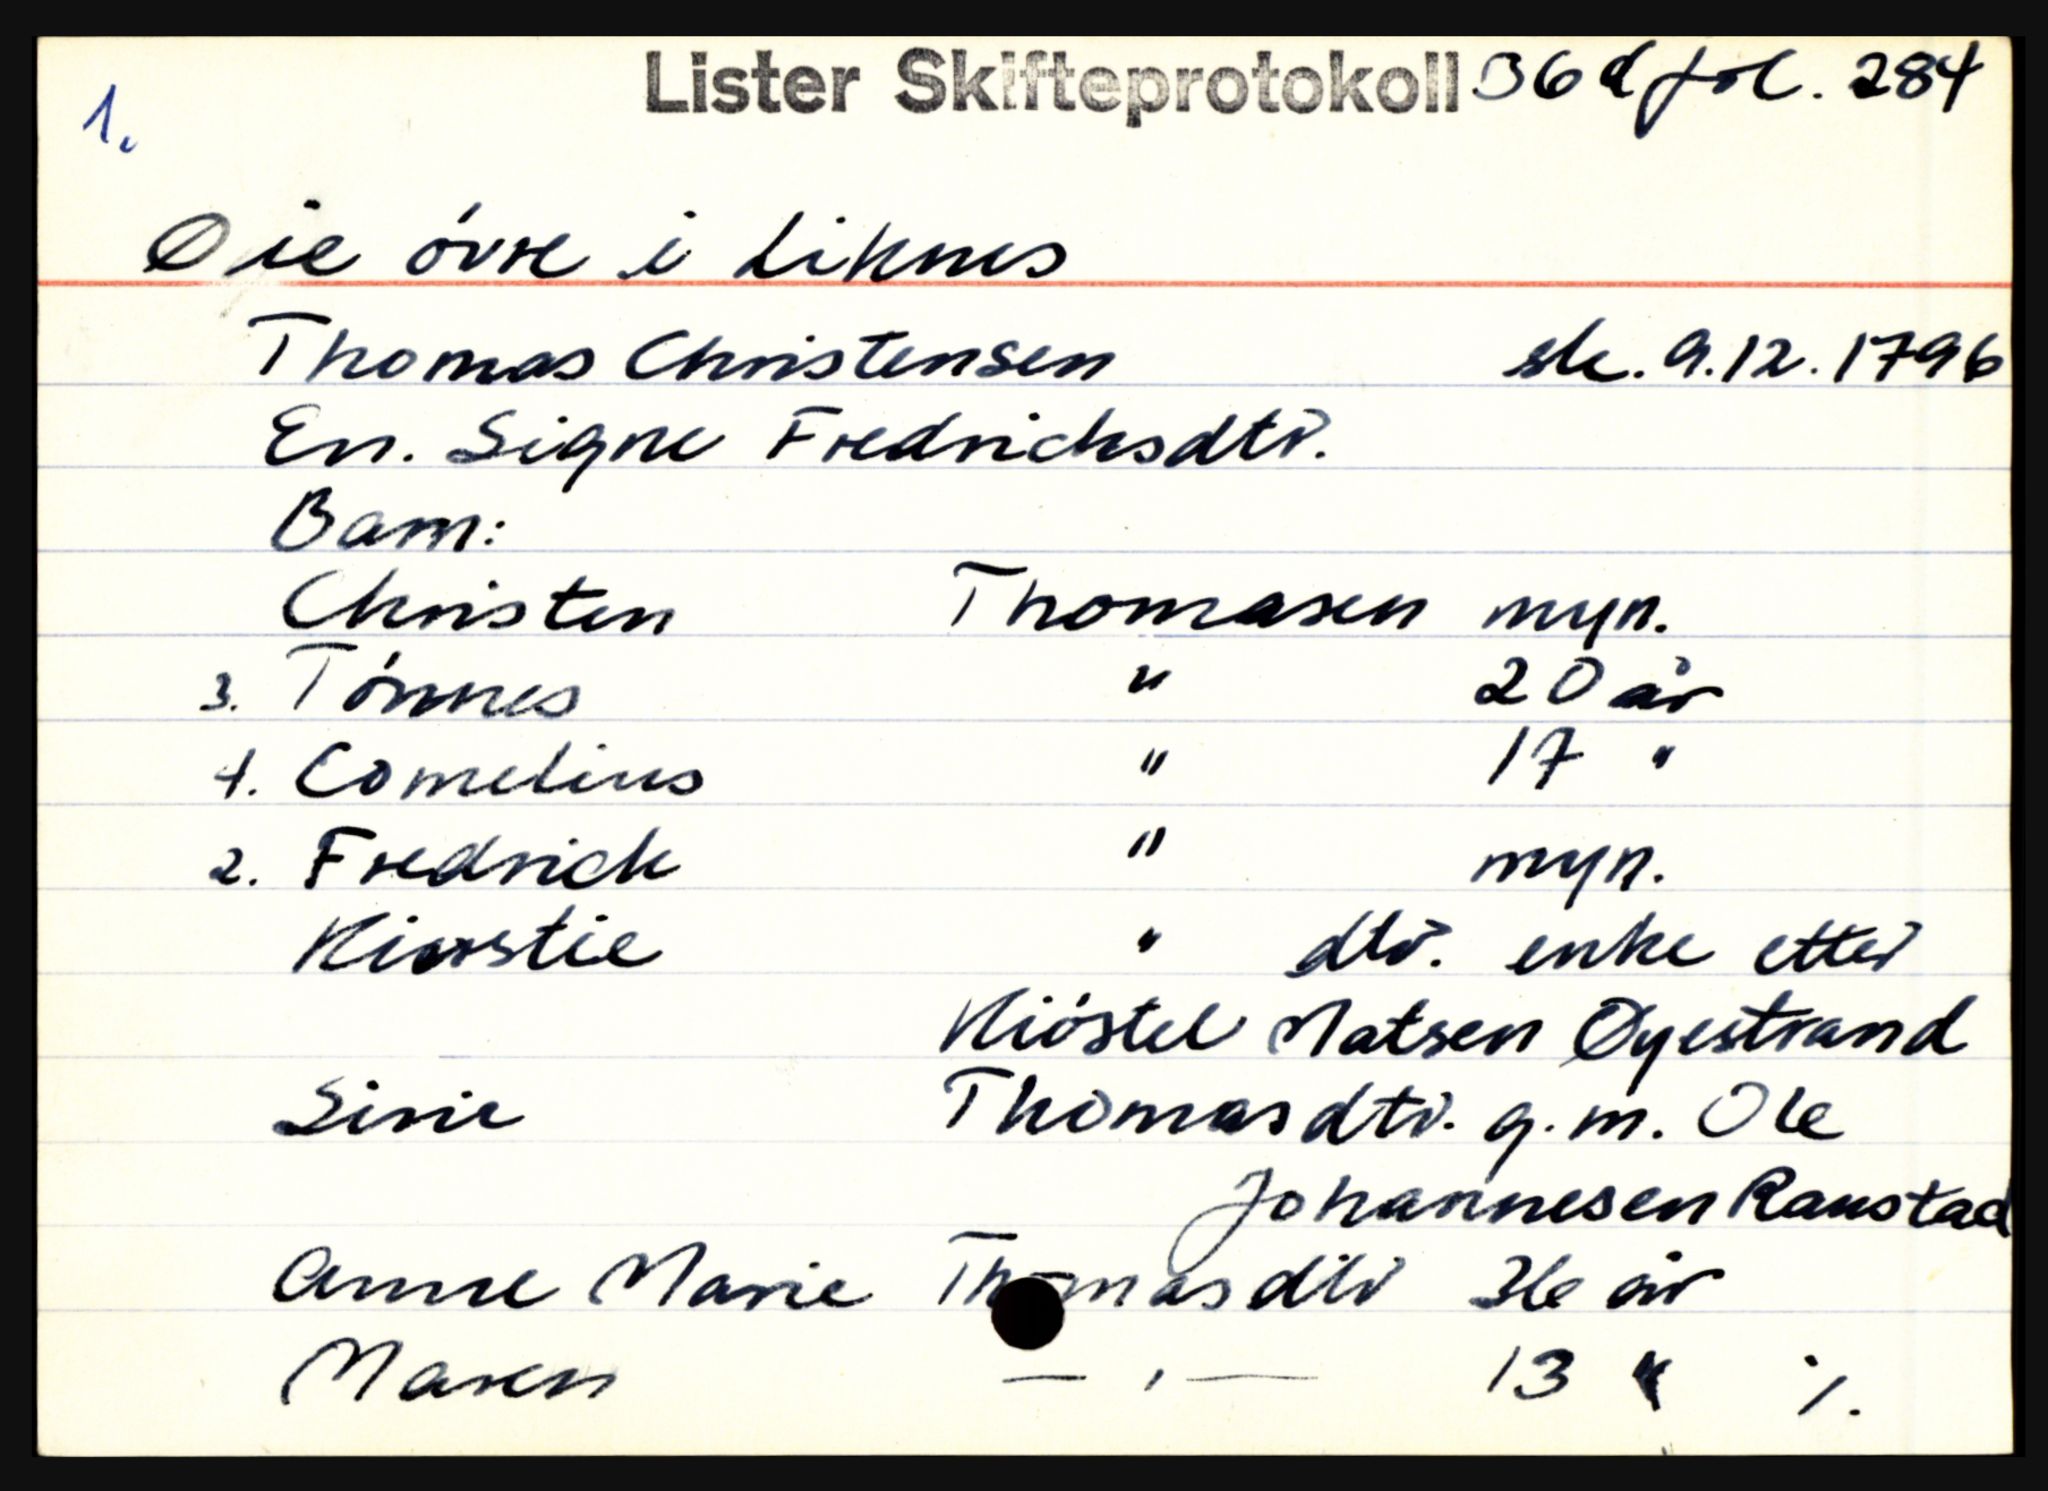 Lister Skifteprotokoll B6d fol. 284
1.
Øie øvre i Liknes
Thomas Christensen sk. 9.12.1796
En. Signe Fredrichsdtr.
Barn:
Christen Thomasen myn.
3. Tønnes " 20 år
4. Cornelius " 17 "
2. Fredrich " myn.
Kirstie " dtr. enke etter
Kiøstel Matsen Øyestrand
Sirie Thomasdtr. g.m. Ole
Johannesen Raustad
Anne Marie Thomasdtr 36 år
Maren — " — 13 " ./.